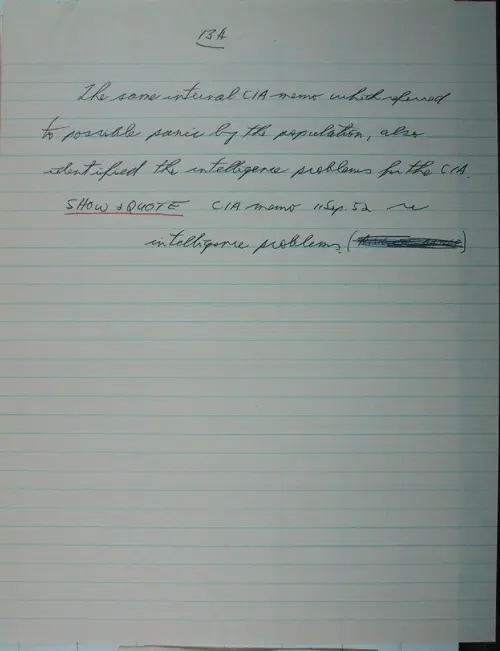 13A
The same internal CIA memo which referred
to possible panic by the population, also
identified the intelligence problems for the CIA.
SHOW & QUOTE CIA memo 11 Sep. 52 re
intelligence problems (